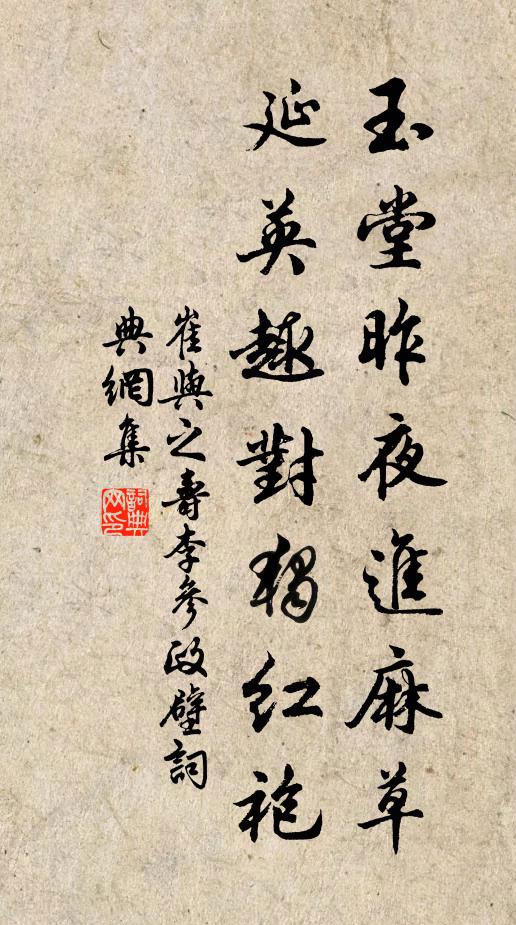 玉堂昨夜進麻草
延英趣對猲紅袍
崔與之壽李參政壁詞
典網集
詞典
网印